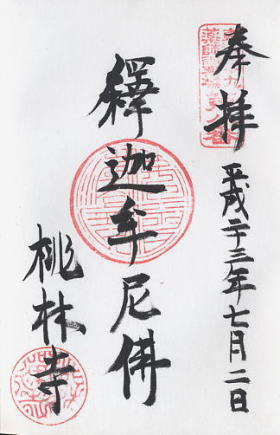 奉拝
平成二十三年七月二日
釋迦牟尼佛
桃林寺